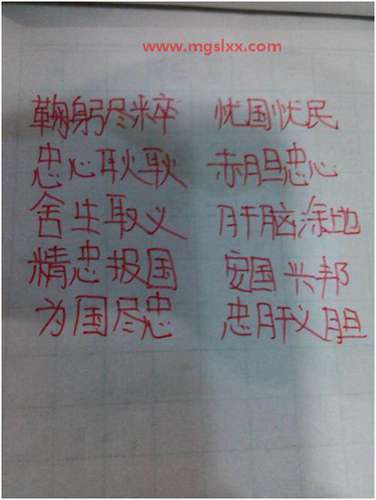 www.mgslxx.com
鞠躬尽粹 忧国忧民
忠心耿耿 赤胆忠心
舍生取义 肝脑涂地
精忠报国 安国兴邦
为国尽忠 忠肝义胆